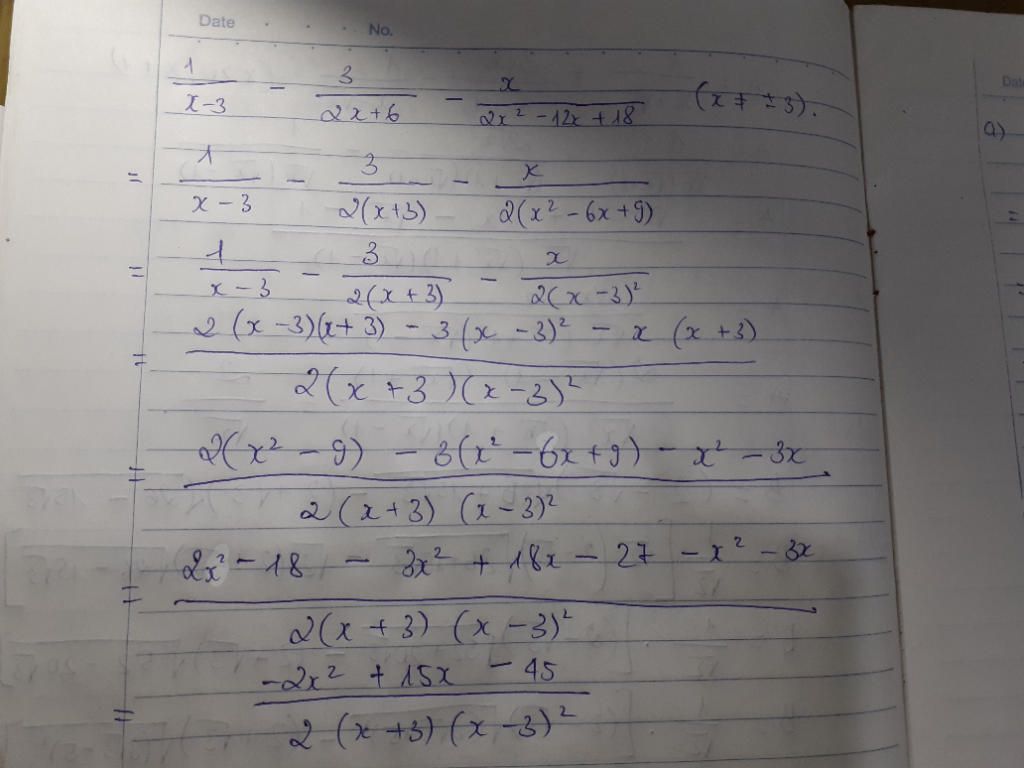 Date No.
1/(x-3) - 3/(2x+6) - x/(2x² -12x +18) (x ≠ ±3).
= 1/(x-3) - 3/(2(x+3)) - x/(2(x² -6x+9))
= 1/(x-3) - 3/(2(x+3)) - x/(2(x-3)²)
= (2(x-3)(x+3) - 3(x-3)² - x(x+3))/(2(x+3)(x-3)²)
= (2(x² - 9) - 3(x² - 6x + 9) - x² - 3x)/(2(x+3)(x-3)²)
= (2x² - 18 - 3x² + 18x - 27 - x² - 3x)/(2(x+3)(x-3)²)
= (-2x² + 15x - 45)/(2(x+3)(x-3)²)
Date
a)
=